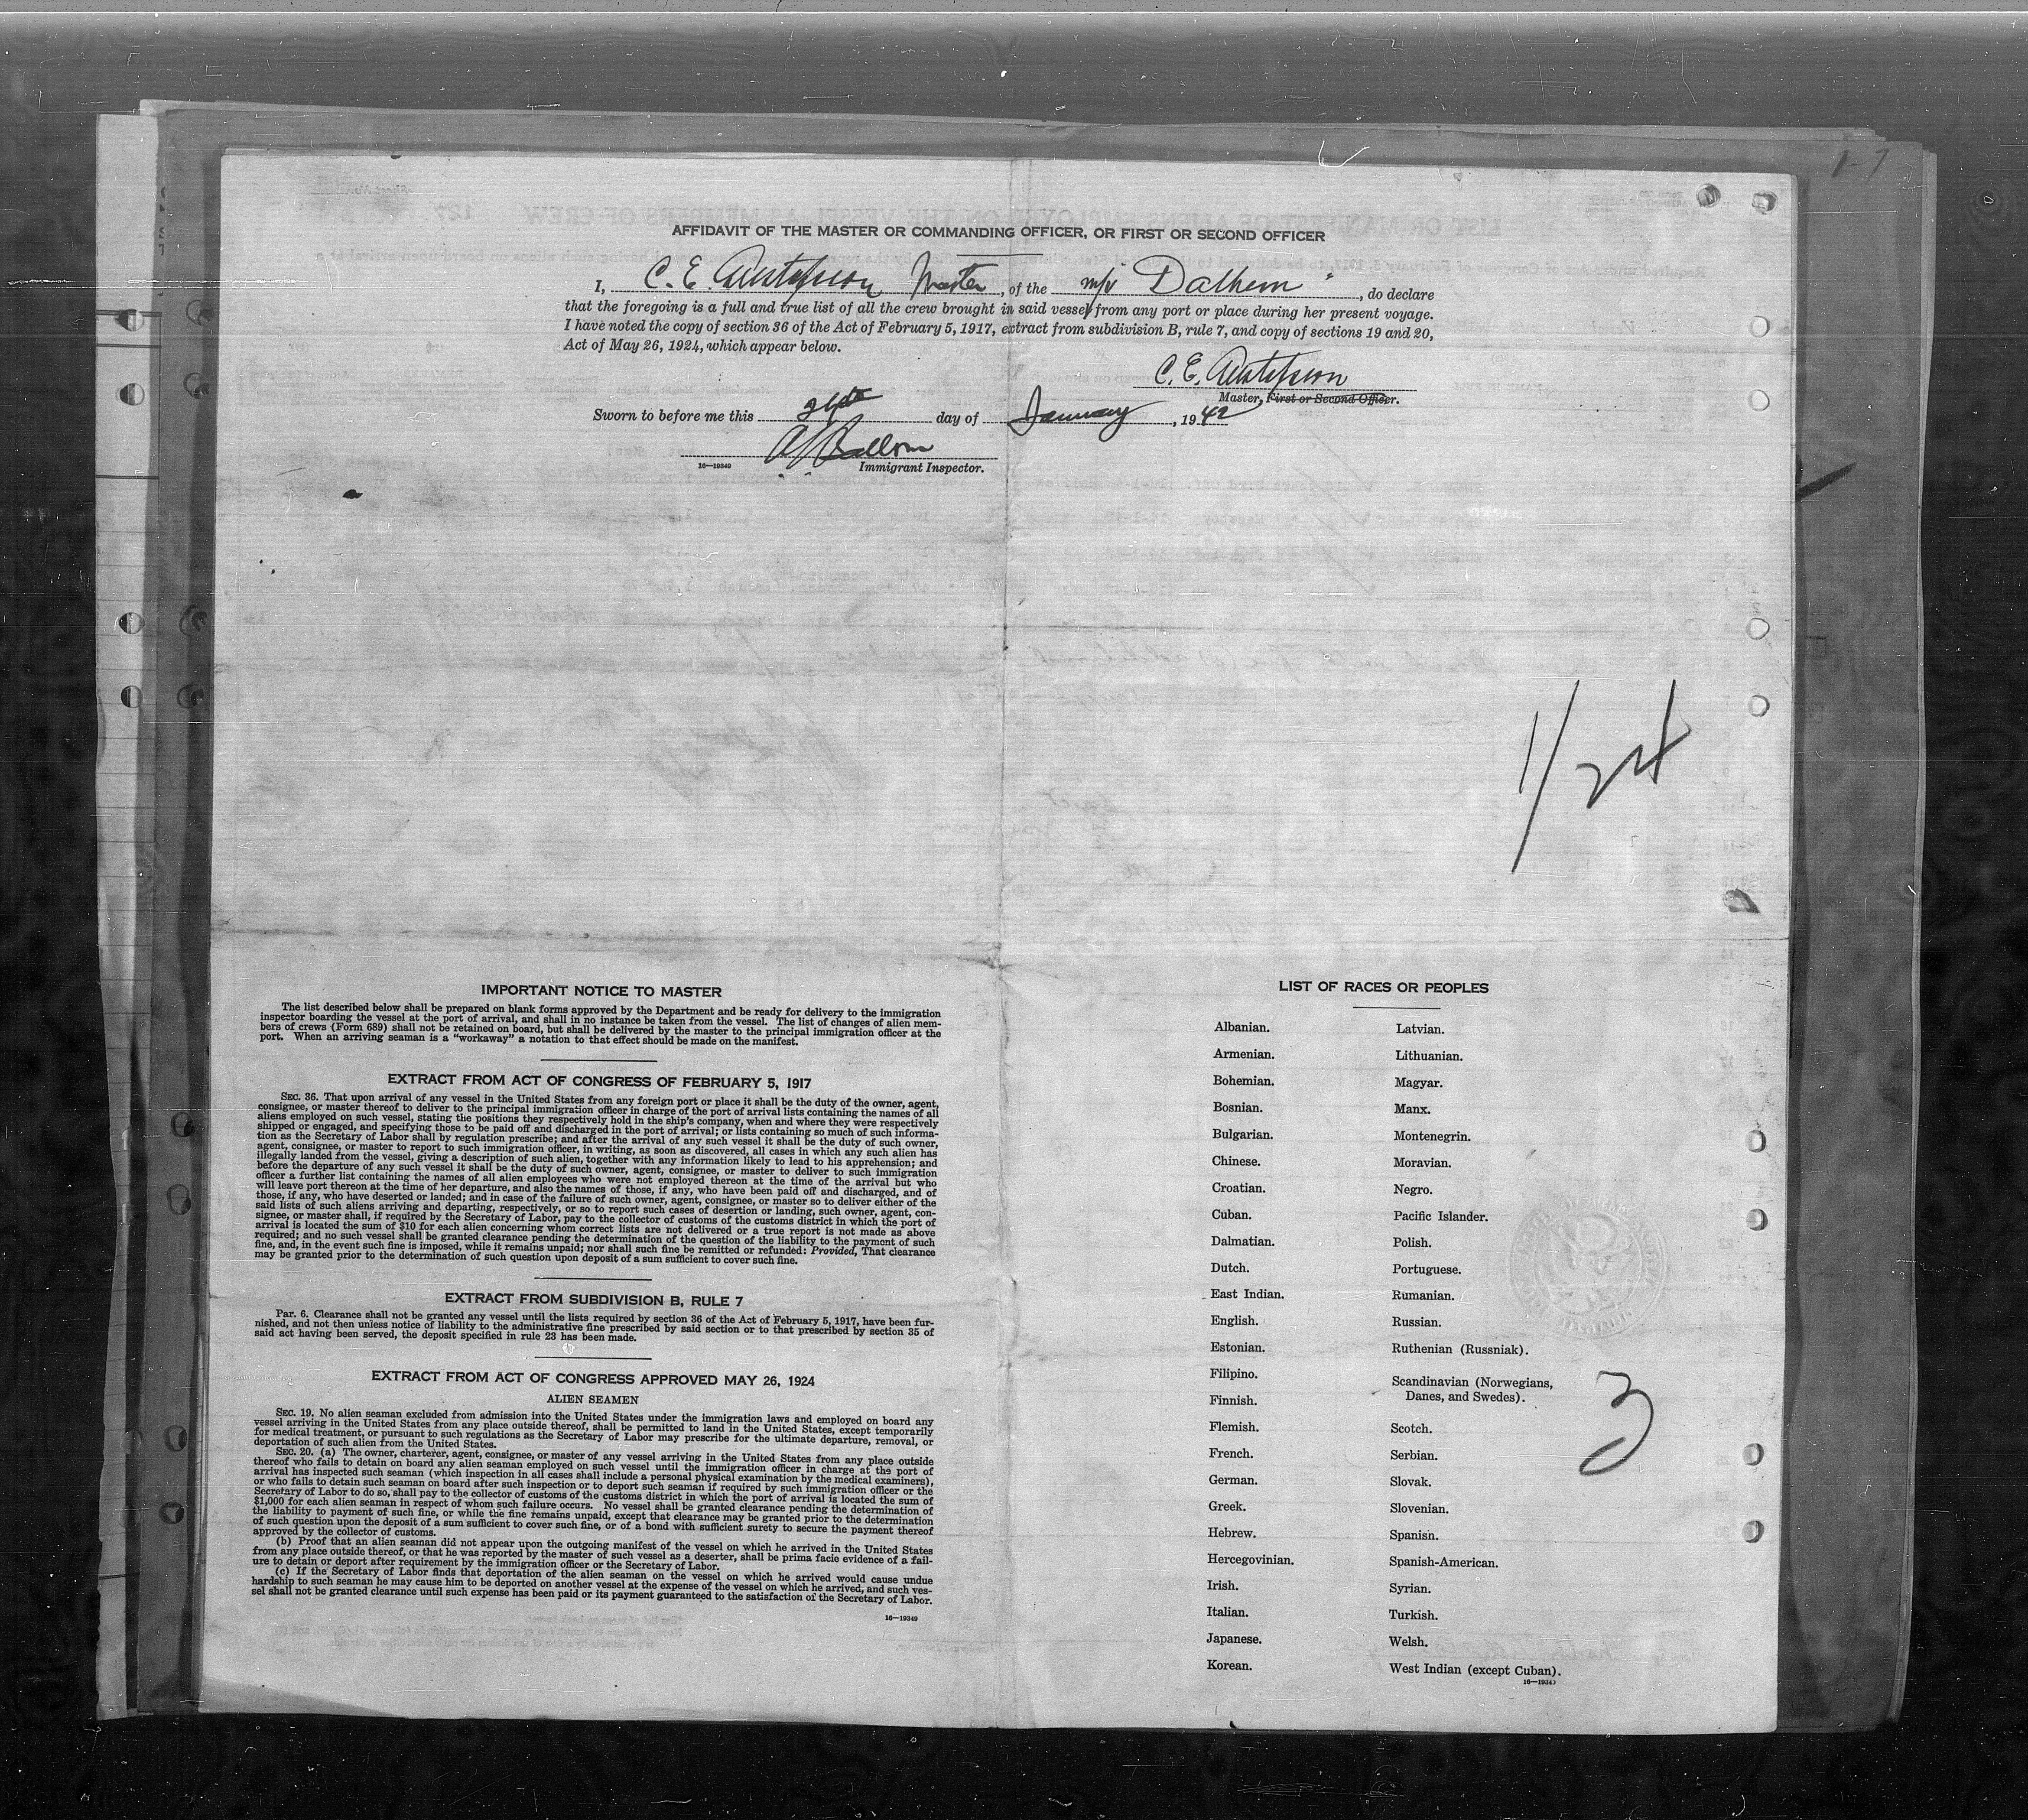 1-7
AFFIDAVIT OF THE MASTER OR COMMANDING OFFICER, OR FIRST OR SECOND OFFICER
I, C. E. Gustafsson Master, of the m/v Dalhem", do declare
that the foregoing is a full and true list of all the crew brought in said vessel from any port or place during her present voyage.
I have noted the copy of section 36 of the Act of February 5, 1917, extract from subdivision B, rule 7, and copy of sections 19 and 20,
Act of May 26, 1924, which appear below.
C. E. Gustafsson
Master, First or Second Officer.
Sworn to before me this 24th day of January, 1942
16—19349 Immigrant Inspector.
1/24
IMPORTANT NOTICE TO MASTER
The list described below shall be prepared on blank forms approved by the Department and be ready for delivery to the immigration
inspector boarding the vessel at the port of arrival, and shall in no instance be taken from the vessel. The list of changes of alien mem-
bers of crews (Form 689) shall not be retained on board, but shall be delivered by the master to the principal immigration officer at the
port. When an arriving seaman is a "workaway" a notation to that effect should be made on the manifest.
EXTRACT FROM ACT OF CONGRESS OF FEBRUARY 5, 1917
SEC. 36. That upon arrival of any vessel in the United States from any foreign port or place it shall be the duty of the owner, agent,
consignee, or master thereof to deliver to the principal immigration officer in charge of the port of arrival lists containing the names of all
aliens employed on such vessel, stating the positions they respectively hold in the ship's company, when and where they were respectively
shipped or engaged, and specifying those to be paid off and discharged in the port of arrival; or lists containing so much of such informa-
tion as the Secretary of Labor shall by regulation prescribe; and after the arrival of any such vessel it shall be the duty of such owner,
agent, consignee, or master to report to such immigration officer, in writing, as soon as discovered, all cases in which any such alien has
illegally landed from the vessel, giving a description of such alien, together with any information likely to lead to his apprehension; and
before the departure of any such vessel it shall be the duty of such owner, agent, consignee, or master to deliver to such immigration
officer a further list containing the names of all alien employees who were not employed thereon at the time of the arrival but who
will leave port thereon at the time of her departure, and also the names of those, if any, who have been paid off and discharged, and of
those, if any, who have deserted or landed; and in case of the failure of such owner, agent, consignee, or master so to deliver either of the
said lists of such aliens arriving and departing, respectively, or so to report such cases of desertion or landing, such owner, agent, con-
signee, or master shall, if required by the Secretary of Labor, pay to the collector of customs of the customs district in which the port of
arrival is located the sum of $10 for each alien concerning whom correct lists are not delivered or a true report is not made as above
required; and no such vessel shall be granted clearance pending the determination of the question of the liability to the payment of such
fine, and, in the event such fine is imposed, while it remains unpaid; nor shall such fine be remitted or refunded: Provided, That clearance
may be granted prior to the determination of such question upon deposit of a sum sufficient to cover such fine.
EXTRACT FROM SUBDIVISION B, RULE 7
Par. 6. Clearance shall not be granted any vessel until the lists required by section 36 of the Act of February 5, 1917, have been fur-
nished, and not then unless notice of liability to the administrative fine prescribed by said section or to that prescribed by section 35 of
said act having been served, the deposit specified in rule 23 has been made.
EXTRACT FROM ACT OF CONGRESS APPROVED MAY 26, 1924
ALIEN SEAMEN
SEC. 19. No alien seaman excluded from admission into the United States under the immigration laws and employed on board any
vessel arriving in the United States from any place outside thereof, shall be permitted to land in the United States, except temporarily
for medical treatment, or pursuant to such regulations as the Secretary of Labor may prescribe for the ultimate departure, removal, or
deportation of such alien from the United States.
SEC. 20. (a) The owner, charterer, agent, consignee, or master of any vessel arriving in the United States from any place outside
thereof who fails to detain on board any alien seaman employed on such vessel until the immigration officer in charge at the port of
arrival has inspected such seaman (which inspection in all cases shall include a personal physical examination by the medical examiners),
or who fails to detain such seaman on board after such inspection or to deport such seaman if required by such immigration officer or the
Secretary of Labor to do so, shall pay to the collector of customs of the customs district in which the port of arrival is located the sum of
$1,000 for each alien seaman in respect of whom such failure occurs. No vessel shall be granted clearance pending the determination of
the liability to payment of such fine, or while the fine remains unpaid, except that clearance may be granted prior to the determination
of such question upon the deposit of a sum sufficient to cover such fine, or of a bond with sufficient surety to secure the payment thereof
approved by the collector of customs.
(b) Proof that an alien seaman did not appear upon the outgoing manifest of the vessel on which he arrived in the United States
from any place outside thereof, or that he was reported by the master of such vessel as a deserter, shall be prima facie evidence of a fail-
ure to detain or deport after requirement by the immigration officer or the Secretary of Labor.
(c) If the Secretary of Labor finds that deportation of the alien seaman on the vessel on which he arrived would cause undue
hardship to such seaman he may cause him to be deported on another vessel at the expense of the vessel on which he arrived, and such ves-
sel shall not be granted clearance until such expense has been paid or its payment guaranteed to the satisfaction of the Secretary of Labor.
16—19349
LIST OF RACES OR PEOPLES
Albanian.
Armenian.
Bohemian.
Bosnian.
Bulgarian.
Chinese.
Croatian.
Cuban.
Dalmatian.
Dutch.
East Indian.
English.
Estonian.
Filipino.
Finnish.
Flemish.
French.
German.
Greek.
Hebrew.
Hercegovinian.
Irish.
Italian.
Japanese.
Korean.
Latvian.
Lithuanian.
Magyar.
Manx.
Montenegrin.
Moravian.
Negro.
Pacific Islander.
Polish.
Portuguese.
Rumanian.
Russian.
Ruthenian (Russniak).
Scandinavian (Norwegians,
Danes, and Swedes).
Scotch.
Serbian.
Slovak.
Slovenian.
Spanish.
Spanish-American.
Syrian.
Turkish.
Welsh.
West Indian (except Cuban).
16—19349
3